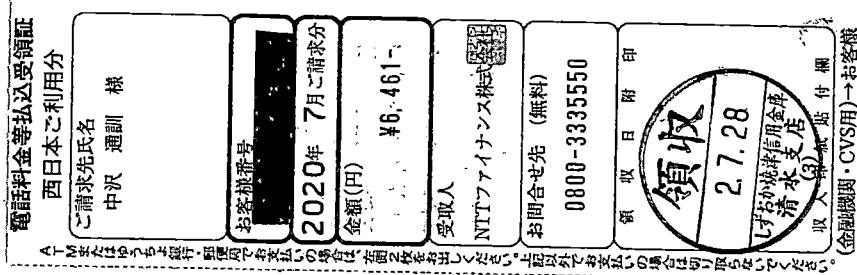 電話料金等払込受領証
西日本ご利用分
ご請求先氏名
中沢 通訓 様
お客様番号
2020年 7月ご請求分
金額(円)
¥6,461-
受取人
NTTファイナンス株式会社
お問合せ先 (無料)
0800-3335550
領収日附印
領収
2.7.28
しずおか焼津信用金庫
清水支店
(3)
収入印紙貼付欄
(金融機関・CVS用)→お客様
ATMまたはゆうちょ銀行・郵便局でお支払いの場合は、左側2枚をお出しください。上記以外でお支払いの場合は切り取らないでください。